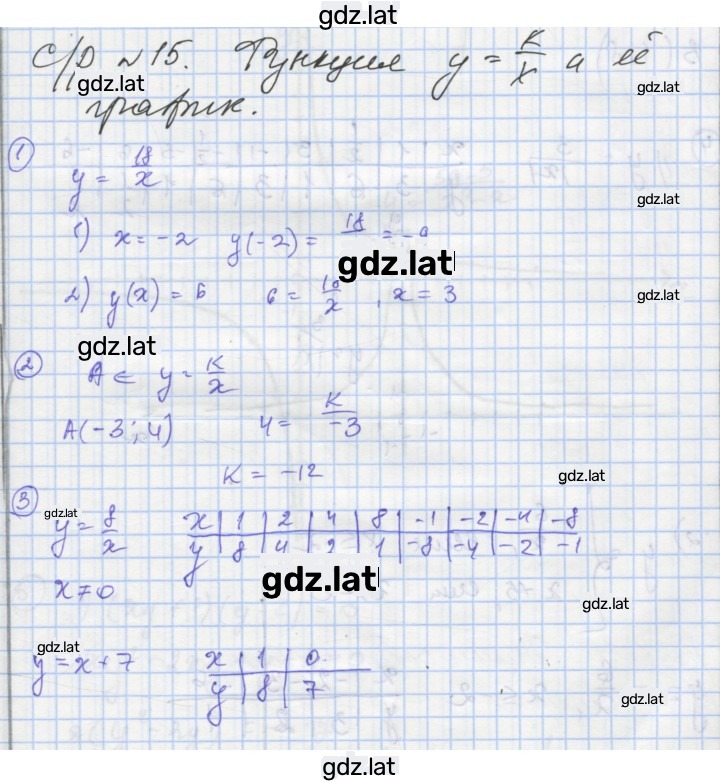 gdz.lat
С/Р №15. Функция y = k/x и её
gdz.lat
gdz.lat
график.
① y = 18/x
gdz.lat
1) x = -2 y(-2) = 18/ = -9
gdz.lat
gdz.lat
2) y(x) = 6 6 = 18/x , x = 3
gdz.lat
gdz.lat
② A ∈ y = k/x
A(-3; 4) 4 = k/-3
k = -12
gdz.lat
③ gdz.lat
y = 8/x
x | 1 | 2 | 4 | 8 | -1 | -2 | -4 | -8
y | 8 | 4 | 2 | 1 | -8 | -4 | -2 | -1
x ≠ 0
gdz.lat
gdz.lat
gdz.lat
y = x + 7
x | 1 | 0
y | 8 | 7
gdz.lat
gdz.lat